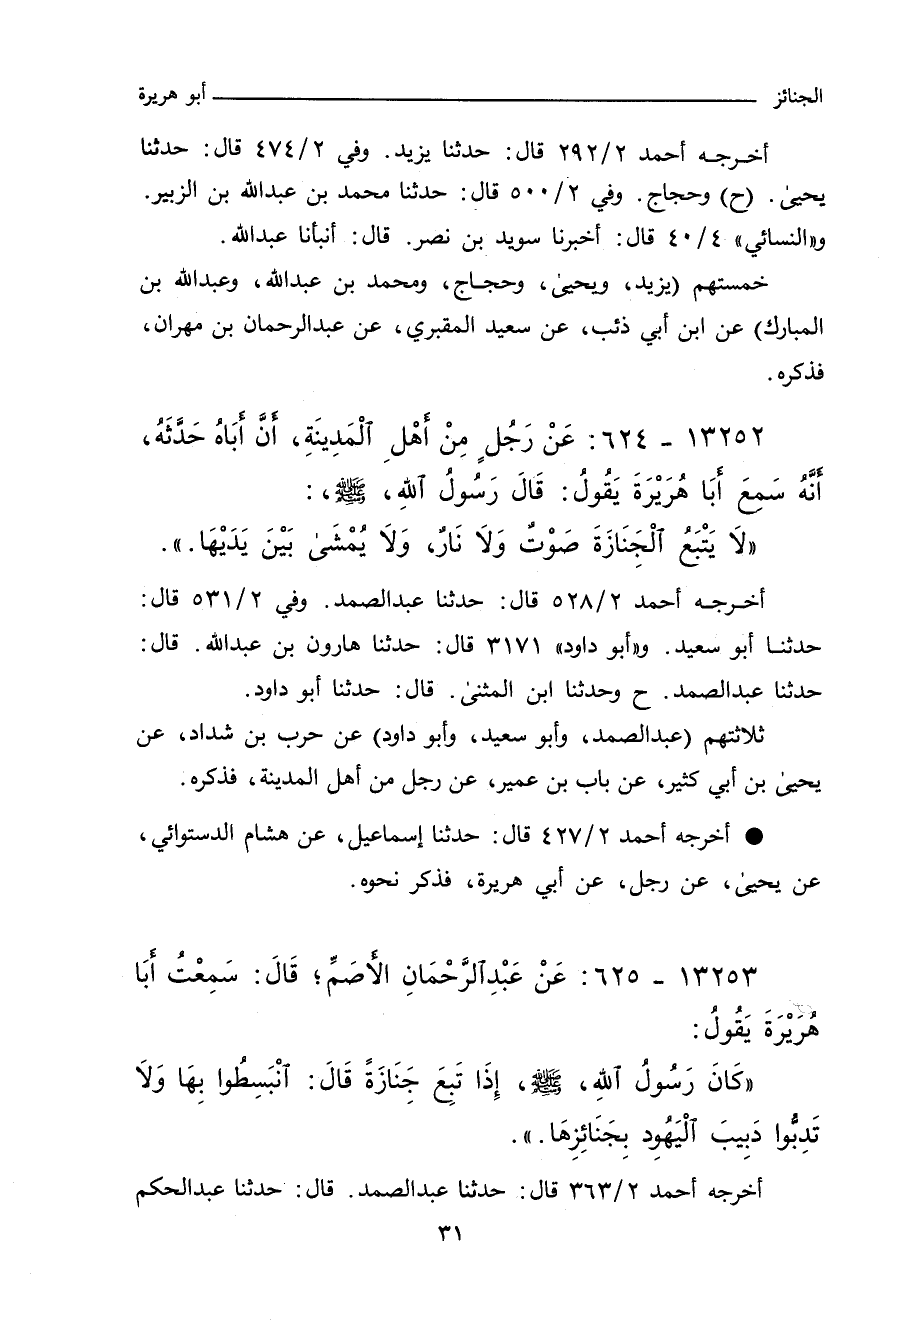 الجنائز ــــــــــــــــــــــــــــــــــــــــ أبو هريرة
أخـرجـه أحمد ٢/٢٩٢ قال: حدثنا يزيد. وفي ٢/٤٧٤ قال: حدثنا
يحيىٰ. (ح) وحجاج. وفي ٢/٥٠٠ قال: حدثنا محمد بن عبدالله بن الزبير.
و«النسائي» ٤/٤٠ قال: أخبرنا سويد بن نصر. قال: أنبأنا عبدالله.
خمستهم (يزيد، ويحيىٰ، وحجـاج، ومحمد بن عبدالله، وعبدالله بن
المبارك) عن ابن أبي ذئب، عن سعيد المقبري، عن عبدالرحمان بن مهران،
فذكره.
١٣٢٥٢ - ٦٢٤: عَنْ رَجُلٍ مِنْ أَهْلِ ٱلْمَدِينَةِ، أَنَّ أَبَاهُ حَدَّثَهُ،
أَنَّهُ سَمِعَ أَبَا هُرَيْرَةَ يَقُولُ: قَالَ رَسُولُ ٱللهِ، ﷺ،:
«لَا يَتْبَعُ ٱلْجَنَازَةَ صَوْتٌ وَلَا نَارٌ، وَلَا يُمْشَىٰ بَيْنَ يَدَيْهَا.».
أخـرجـه أحمد ٢/٥٢٨ قال: حدثنا عبدالصمد. وفي ٢/٥٣١ قال:
حدثنـا أبو سعيد. و«أبو داود» ٣١٧١ قال: حدثنا هارون بن عبدالله. قال:
حدثنا عبدالصمد. ح وحدثنا ابن المثنىٰ. قال: حدثنا أبو داود.
ثلاثتهم (عبدالصمد، وأبو سعيد، وأبو داود) عن حرب بن شداد، عن
يحيىٰ بن أبي كثير، عن باب بن عمير، عن رجل من أهل المدينة، فذكره.
● أخرجه أحمد ٢/٤٢٧ قال: حدثنا إسماعيل، عن هشام الدستوائي،
عن يحيىٰ، عن رجل، عن أبي هريرة، فذكر نحوه.
١٣٢٥٣ - ٦٢٥: عَنْ عَبْدِٱلرَّحْمَانِ الأَصَمِّ؛ قَالَ: سَمِعْتُ أَبَا
هُرَيْرَةَ يَقُولُ:
«كَانَ رَسُولُ ٱللهِ، ﷺ، إِذَا تَبِعَ جَنَازَةً قَالَ: ٱنْبَسِطُوا بِهَا وَلَا
تَدِبُّوا دَبِيبَ ٱلْيَهُودِ بِجَنَائِزِهَا.».
أخرجه أحمد ٢/٣٦٣ قال: حدثنا عبدالصمد. قال: حدثنا عبدالحكم
٣١